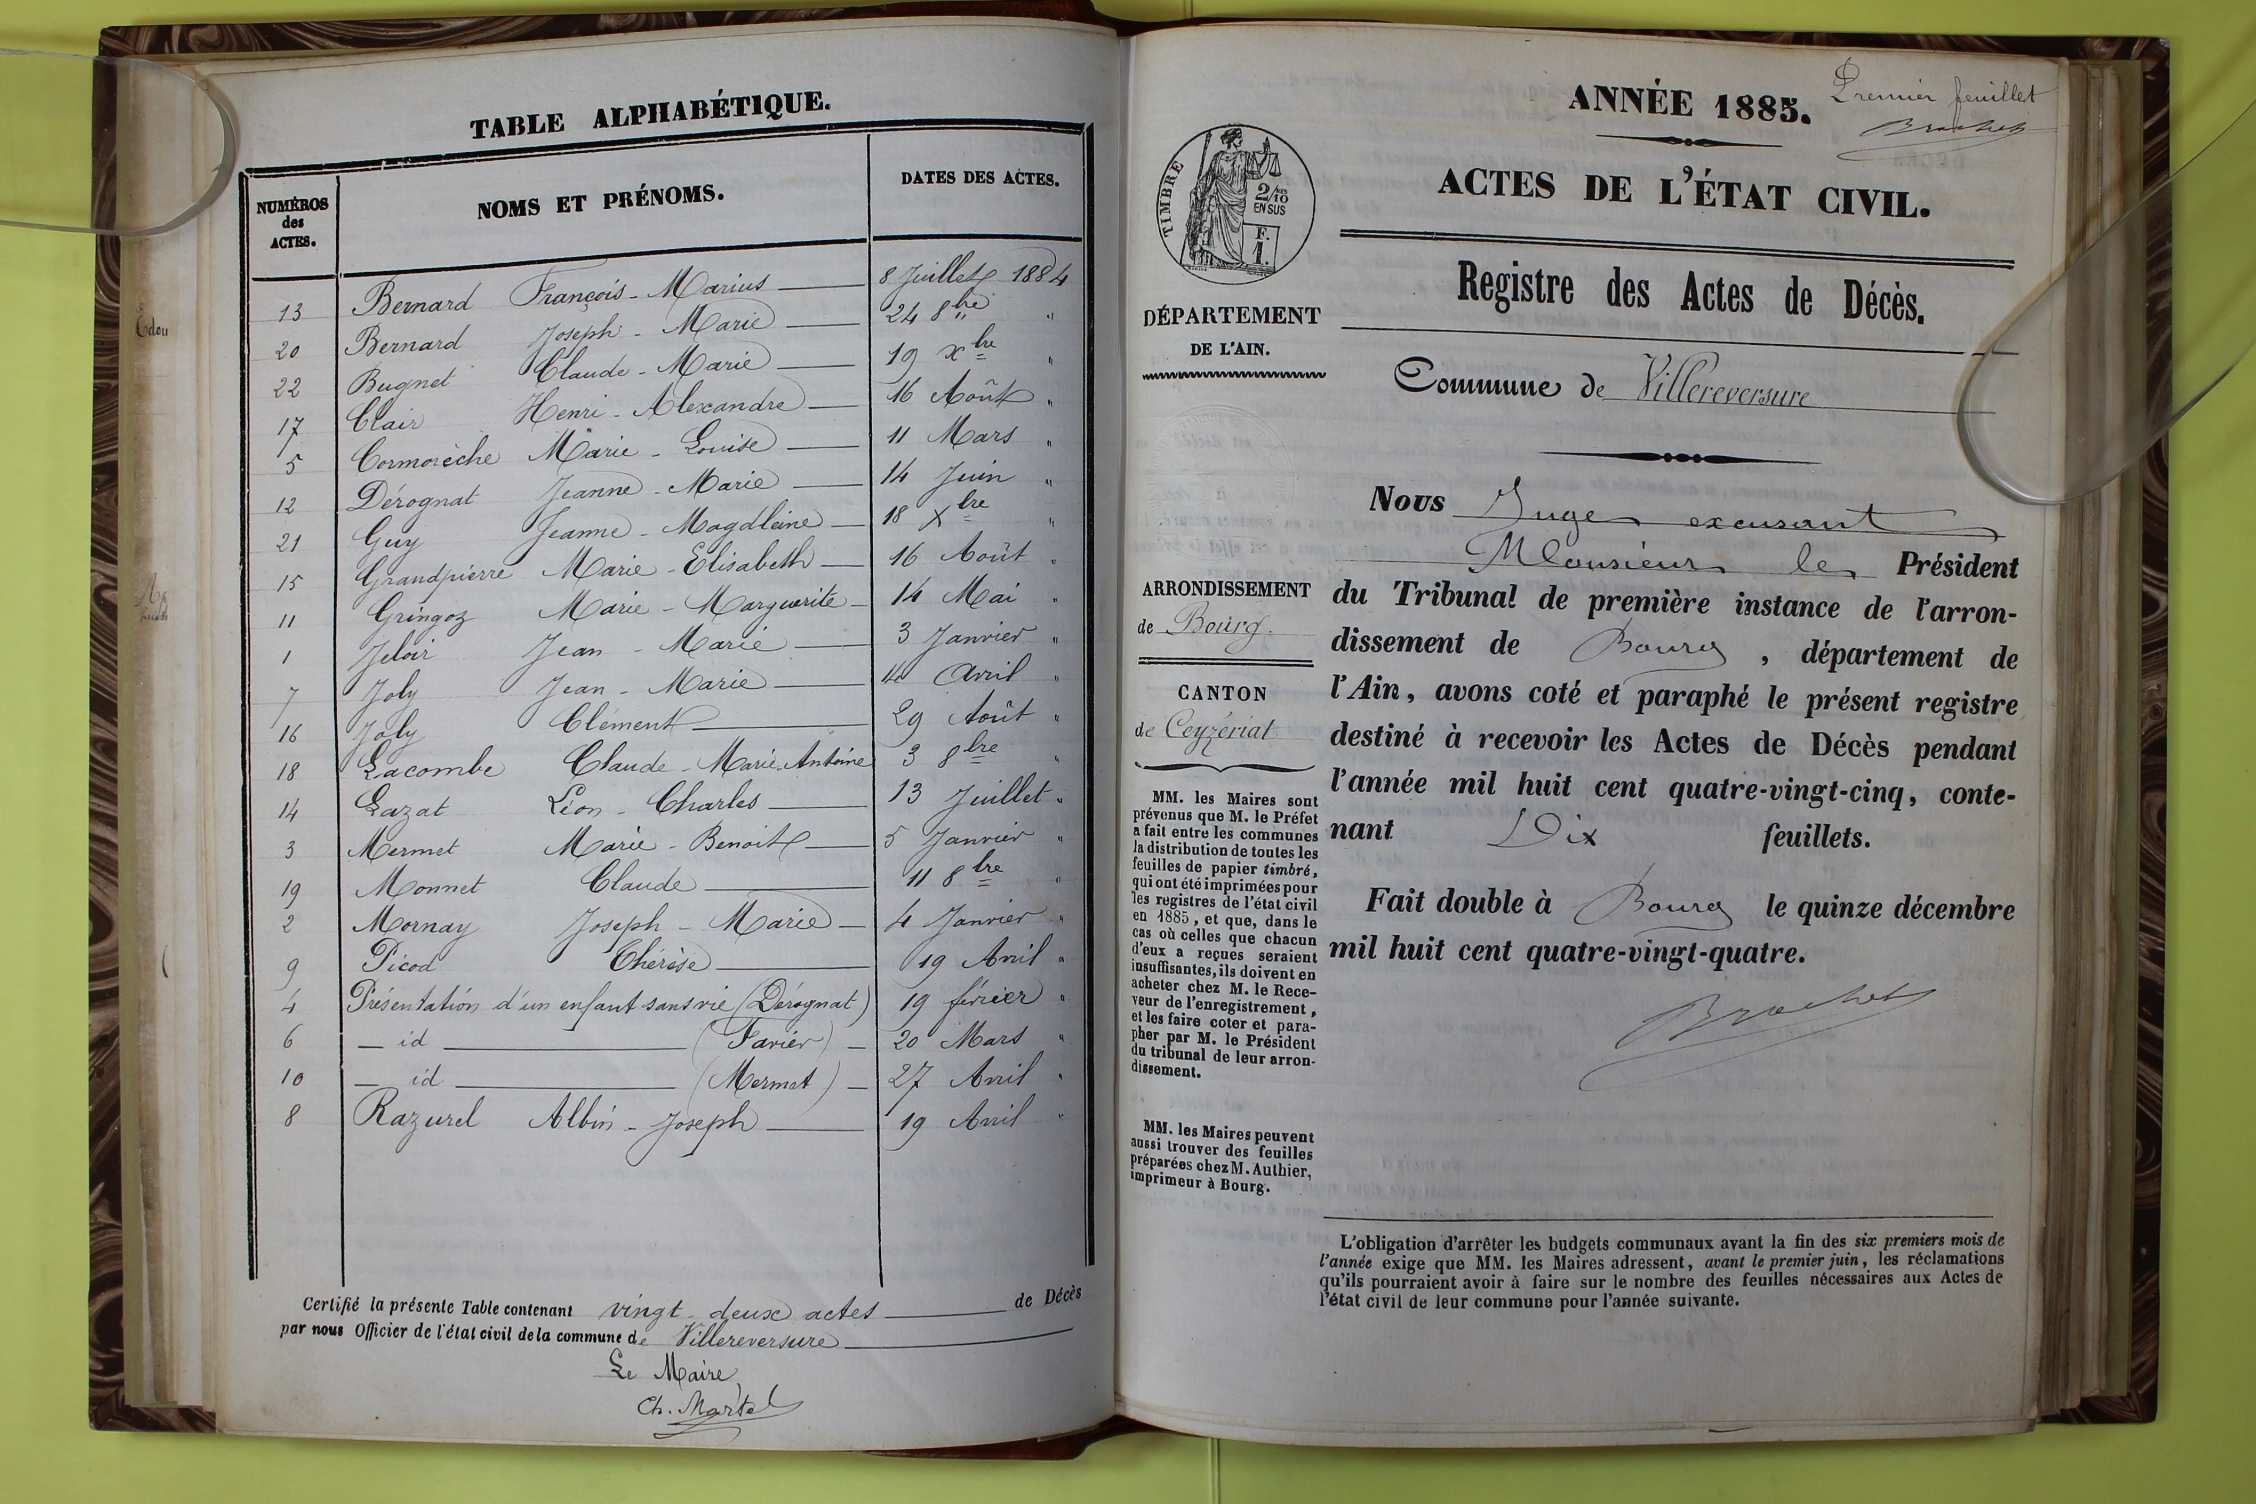 TABLE ALPHABÉTIQUE.
NUMÉROS des ACTES. NOMS ET PRÉNOMS. DATES DES ACTES.
13 Bernard François-Marius 8 Juillet 1884
20 Bernard Joseph-Marie 24 8bre "
22 Bugnet Claude-Marie 19 Xbre "
17 Clair Henri-Alexandre 16 Août "
5 Cormorèche Marie-Louise 11 Mars "
12 Dérognat Jeanne-Marie 14 Juin "
21 Guy Jeanne-Magdleine 18 Xbre "
15 Grandpierre Marie-Elisabeth 16 Août "
11 Gringoz Marie-Marguerite 14 Mai "
1 Jeloir Jean-Marie 3 Janvier "
7 Joly Jean-Marie 4 Avril "
16 Joly Clément 29 Août "
18 Lacombe Claude-Marie-Antoine 3 8bre "
14 Lazat Léon-Charles 13 Juillet "
3 Mermet Marie-Benoit 5 Janvier "
19 Monnet Claude 11 8bre "
2 Mornay Joseph-Marie 4 Janvier "
9 Picod Thérèse 19 Avril "
4 Présentation d'un enfant sans vie (Dérognat) 19 février "
6 — id — (Favier) — 20 Mars "
10 — id — (Mermet) — 27 Avril "
8 Razurel Albin-Joseph 19 Avril "
Certifié la présente Table contenant vingt-deux actes de Décès
par nous Officier de l'état civil de la commune de Villereversure
Le Maire
Ch. Martel
Premier feuillet
Brachet
ANNÉE 1885.
ACTES DE L'ÉTAT CIVIL.
TIMBRE
2/10 EN SUS
F. 1.
Registre des Actes de Décès.
DÉPARTEMENT
DE L'AIN.
Commune de Villereversure
ARRONDISSEMENT
de Bourg.
CANTON
de Ceyzériat
MM. les Maires sont
prévenus que M. le Préfet
a fait entre les communes
la distribution de toutes les
feuilles de papier timbré,
qui ont été imprimées pour
les registres de l'état civil
en 1885, et que, dans le
cas où celles que chacun
d'eux a reçues seraient
insuffisantes, ils doivent en
acheter chez M. le Rece-
veur de l'enregistrement,
et les faire coter et para-
pher par M. le Président
du tribunal de leur arron-
dissement.
MM. les Maires peuvent
aussi trouver des feuilles
préparées chez M. Authier,
imprimeur à Bourg.
Nous Juge excusant
Monsieur le Président
du Tribunal de première instance de l'arron-
dissement de Bourg, département de
l'Ain, avons coté et paraphé le présent registre
destiné à recevoir les Actes de Décès pendant
l'année mil huit cent quatre-vingt-cinq, conte-
nant Dix feuillets.
Fait double à Bourg le quinze décembre
mil huit cent quatre-vingt-quatre.
Brachet
L'obligation d'arrêter les budgets communaux avant la fin des six premiers mois de
l'année exige que MM. les Maires adressent, avant le premier juin, les réclamations
qu'ils pourraient avoir à faire sur le nombre des feuilles nécessaires aux Actes de
l'état civil de leur commune pour l'année suivante.